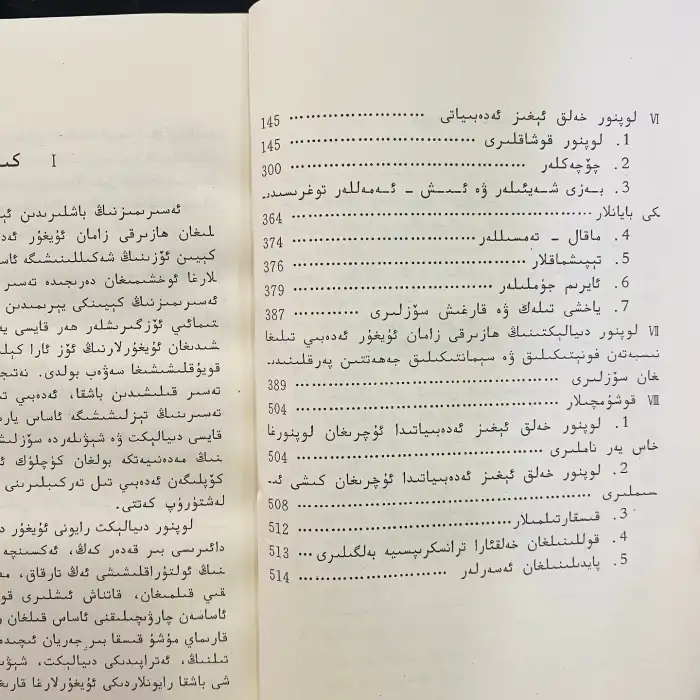 Ⅵ لوپنور خەلق ئېغىز ئەدەبىياتى ........................ 145
1. لوپنور قوشاقلىرى ........................ 145
2. چۆچەكلەر ........................ 300
3. بەزى شەيئىلەر ۋە ئىش - ئەمەللەر توغرىسىدى-
كى بايانلار ........................ 364
4. ماقال - تەمسىللەر ........................ 374
5. تېپىشماقلار ........................ 376
6. ئايرىم جۈملىلەر ........................ 379
7. ياخشى تىلەك ۋە قارغىش سۆزلىرى ............ 387
Ⅶ لوپنور دىيالېكتىنىڭ ھازىرقى زامان ئۇيغۇر ئەدەبىي تىلىغا
نىسبەتەن فونېتىكىلىق ۋە سېمانتىكىلىق جەھەتتىن پەرقلىنىدى-
غان سۆزلىرى ........................ 389
Ⅷ قوشۇمچىلار ........................ 504
1. لوپنور خەلق ئېغىز ئەدەبىياتىدا ئۇچرىغان لوپنورغا
خاس يەر ناملىرى ........................ 504
2. لوپنور خەلق ئېغىز ئەدەبىياتىدا ئۇچرىغان كىشى ئى-
سىملىرى ........................ 508
3. قىسقارتىلمىلار ........................ 512
4. قوللىنىلغان خەلقئارا ترانسكرىپسىيە بەلگىلىرى ... 513
5. پايدىلىنىلغان ئەسەرلەر ........................ 514
Ⅰ
ئەسىرىمىزنىڭ باشلىرىدىن
لىغان ھازىرقى زامان ئۇيغۇر
كېيىن ئۆزىنىڭ شەكىللىنىشىگە
لارغا ئوخشىمىغان دەرىجىدە تەسىر
ئەسىرىمىزنىڭ كېيىنكى يېرىمىدىن
تىمائىي ئۆزگىرىشلەر ھەر قايسى
شىدىغان ئۇيغۇرلارنىڭ ئۆز ئارا
قويۇقلىشىشىغا سەۋەب بولدى.
تەسىر قىلىشىدىن باشقا، ئەدەبىي
تەسىرىنىڭ تېزلىشىشىگە ئاساس
قايسى دىيالېكت ۋە شېۋىلەردە
نىڭ مەدەنىيەتكە بولغان كۈچلۈك
كۆپلىگەن ئەدەبىي تىل تەركىبلىرىنى
لەشتۈرۈپ كەتتى.
لوپنور دىيالېكت رايونى ئۇيغۇر
دائىرىسى بىر قەدەر كەڭ، ئەكسىنچە
نىڭ ئولتۇراقلىشىشى ئەڭ تارقاق،
قىي قىلمىغان، قاتناش ئىشلىرى
ئاساسەن چارۋىچىلىقنى ئاساس قىلغان
قارىماي مۇشۇ قىسقا بىر جەريان
تىلنىڭ، ئەتراپىدىكى دىيالېكت،
شى باشقا رايونلاردىكى ئۇيغۇرلارغا